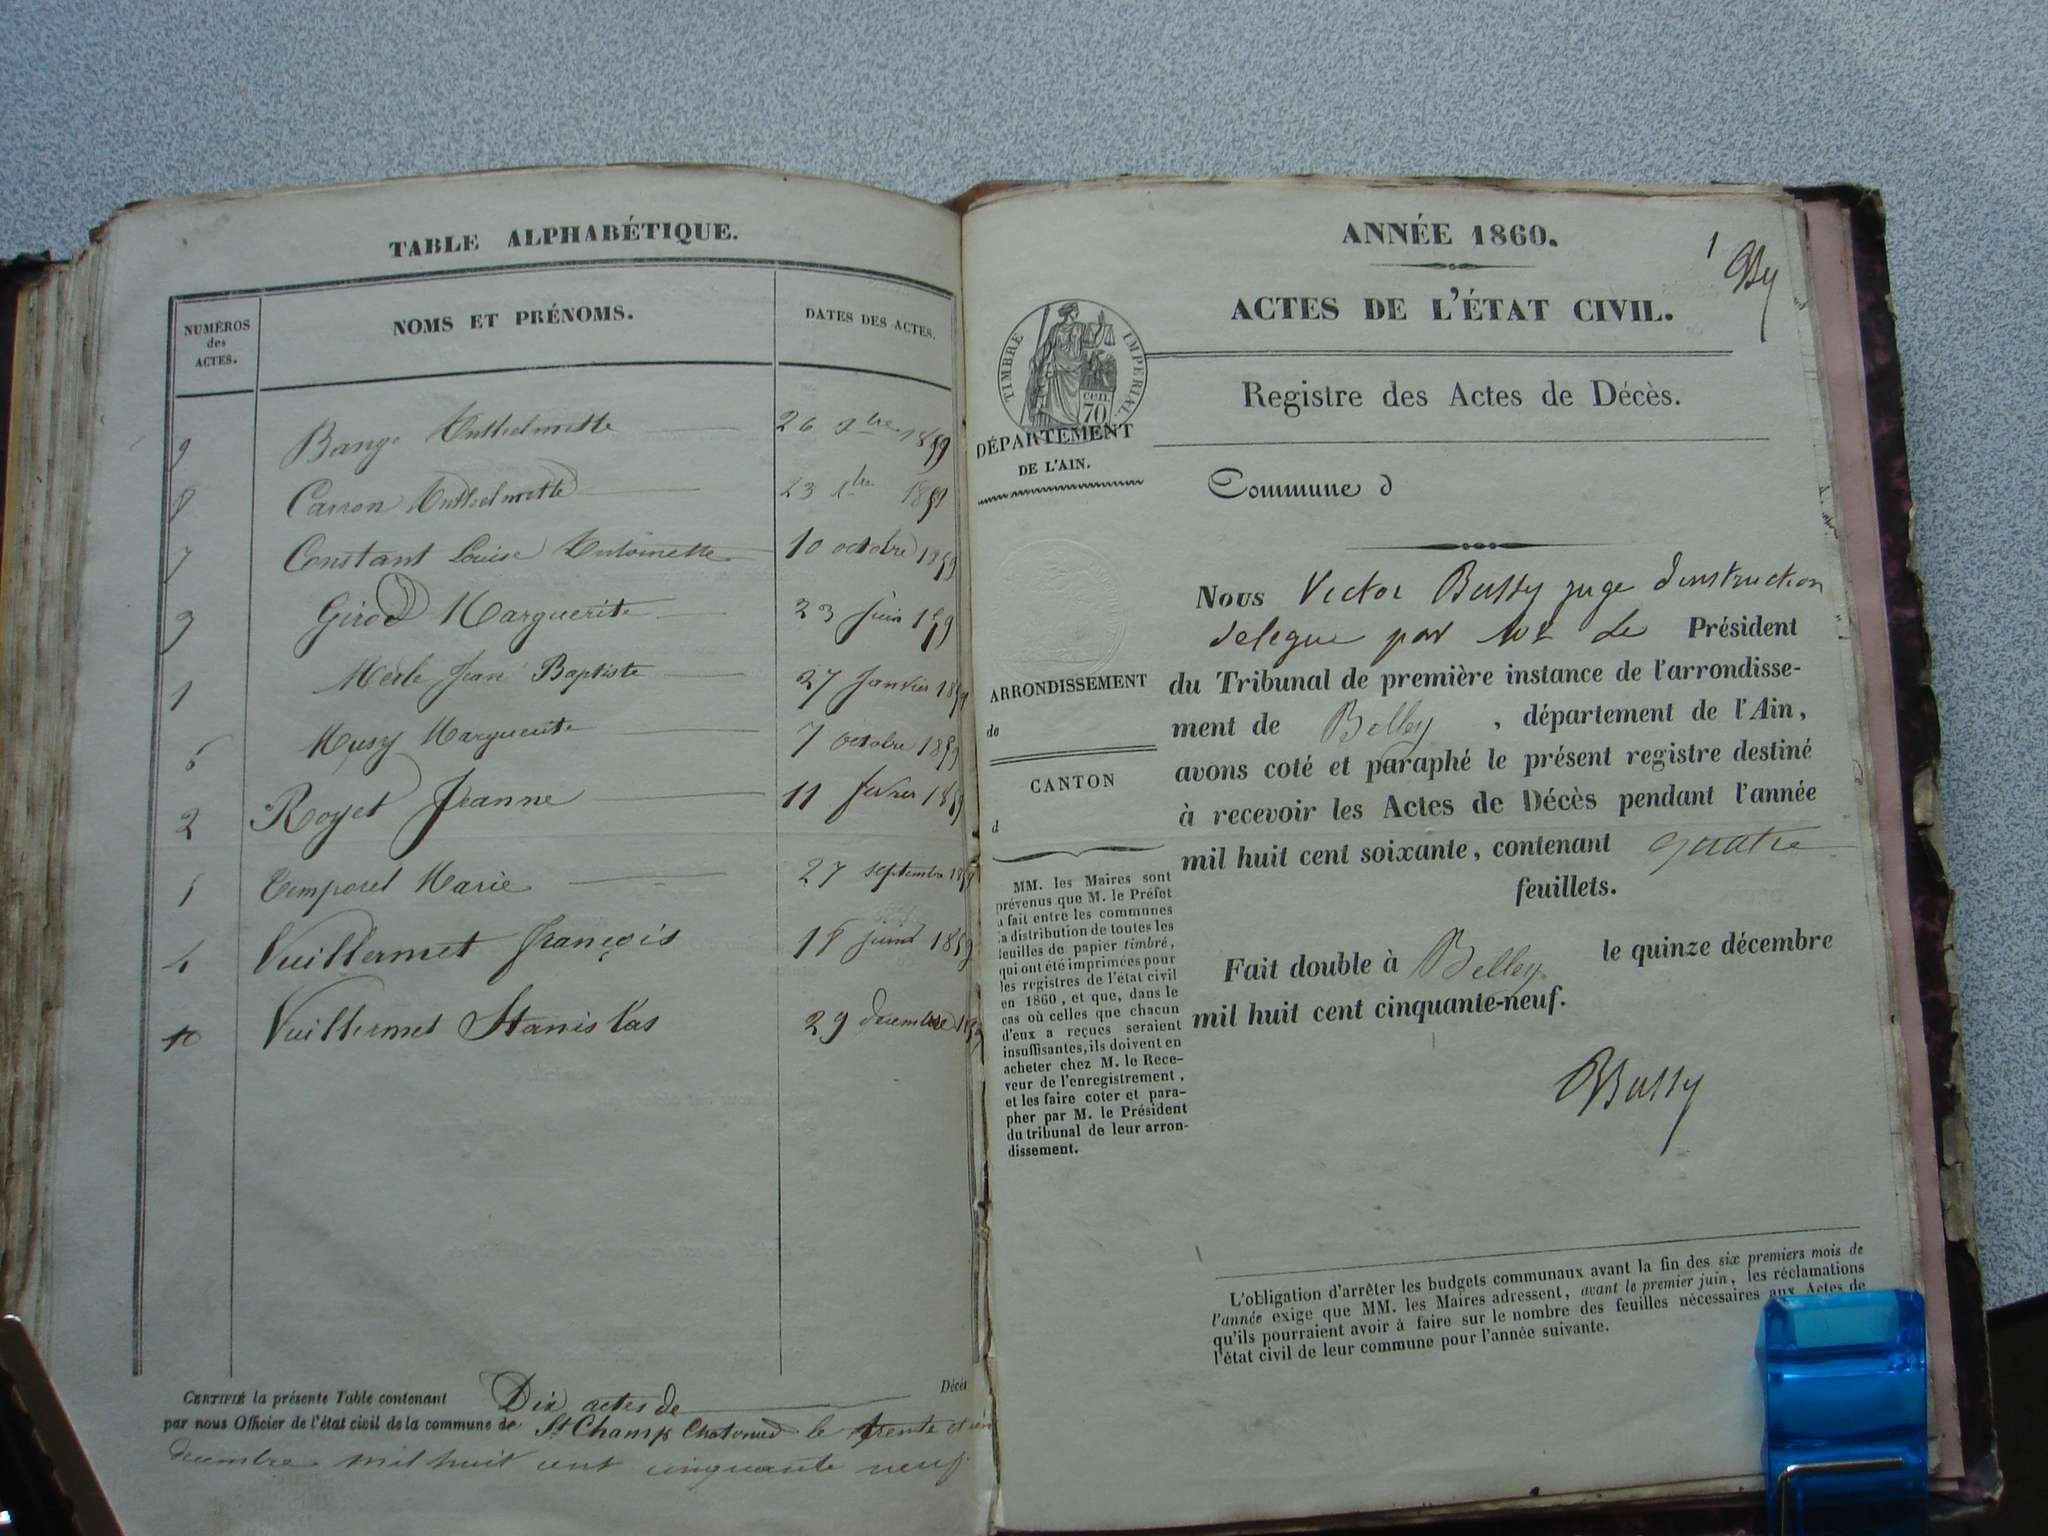 TABLE ALPHABÉTIQUE.
NUMÉROS
des
ACTES.
NOMS ET PRÉNOMS.
DATES DES ACTES.
9 Bange Anthelmette 26 9bre 1859
8 Carron Anthelmette 23 1859
7 Constant Louise Antoinette 10 octobre 1859
3 Girod Marguerite 23 juin 1859
1 Merle Jean Baptiste 27 Janvier 1859
6 Musy Marguerite 7 octobre 1859
2 Royet Jeanne 11 fevrier 1859
5 Temporel Marie 27 septembre 1859
4 Vuillermet François 1859
10 Vuillermet Stanislas 29 decembre 1859
CERTIFIÉ la présente Table contenant Dix actes de Décès
par nous Officier de l'état civil de la commune de St Champ Chatonod le trente et un
decembre mil huit cent cinquante neuf
ANNÉE 1860.
1 By
ACTES DE L'ÉTAT CIVIL.
TIMBRE IMPERIAL.
cen.
70
Registre des Actes de Décès.
DÉPARTEMENT
DE L'AIN.
Commune d
Nous Victor Bussy juge d'instruction
delegue par Mr le Président
du Tribunal de première instance de l'arrondisse-
ment de Belley, département de l'Ain,
avons coté et paraphé le présent registre destiné
à recevoir les Actes de Décès pendant l'année
mil huit cent soixante, contenant quatre
feuillets.
Fait double à Belley le quinze décembre
mil huit cent cinquante-neuf.
Bussy
ARRONDISSEMENT
de
CANTON
d
MM. les Maires sont
prévenus que M. le Préfet
a fait entre les communes
la distribution de toutes les
feuilles de papier timbré,
qui ont été imprimées pour
les registres de l'état civil
en 1860, et que, dans le
cas où celles que chacun
d'eux a reçues seraient
insuffisantes, ils doivent en
acheter chez M. le Rece-
veur de l'enregistrement,
et les faire coter et para-
pher par M. le Président
du tribunal de leur arron-
dissement.
L'obligation d'arrêter les budgets communaux avant la fin des six premiers mois de
l'année exige que MM. les Maires adressent, avant le premier juin, les réclamations
qu'ils pourraient avoir à faire sur le nombre des feuilles nécessaires aux Actes de
l'état civil de leur commune pour l'année suivante.